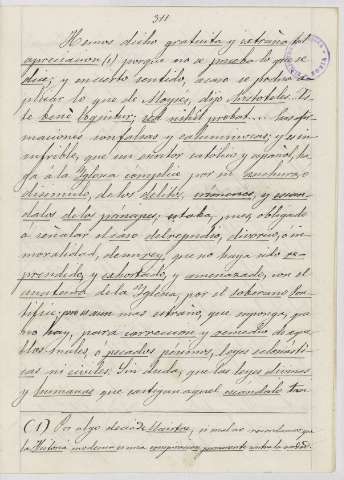 311
Hemos dicho gratuita y extraña tal
apreciacion (1) porque no se prueba lo que se
dice; y en cierto sentido, acaso se podria a-
plicar lo que de Moysés, dijo Aristóteles. Is-
te benè loquitur; sed nihil probat.... las afir-
maciones son falsas y calumniosas; y es in-
creible, que un escritor católico y español, ha-
ga á la Iglesia complice por su
disimulo, de los delitos, crímenes, y escan-
dalos de los príncipes; estaba, pues, obligado
á señalar el caso de repudio, divorcio, ó in-
moralidad, de un rey, que no haya sido re-
prendido, y exhortado, y amenazado, con el
anatema de la Iglesia, por el soberano Pon-
tífice; pero aun mas extraño, que suponga, que
no hay, para correccion y remedio de aque-
llos males, ó pecados públicos, leyes eclesiásti-
cas ni civiles. Sin duda, que las leyes divinas
y humanas que castigan aquel escándalo tan
(1) Por algo decia de Maistre,
la Historia moderna es una conspiracion permanente contra la verdad.